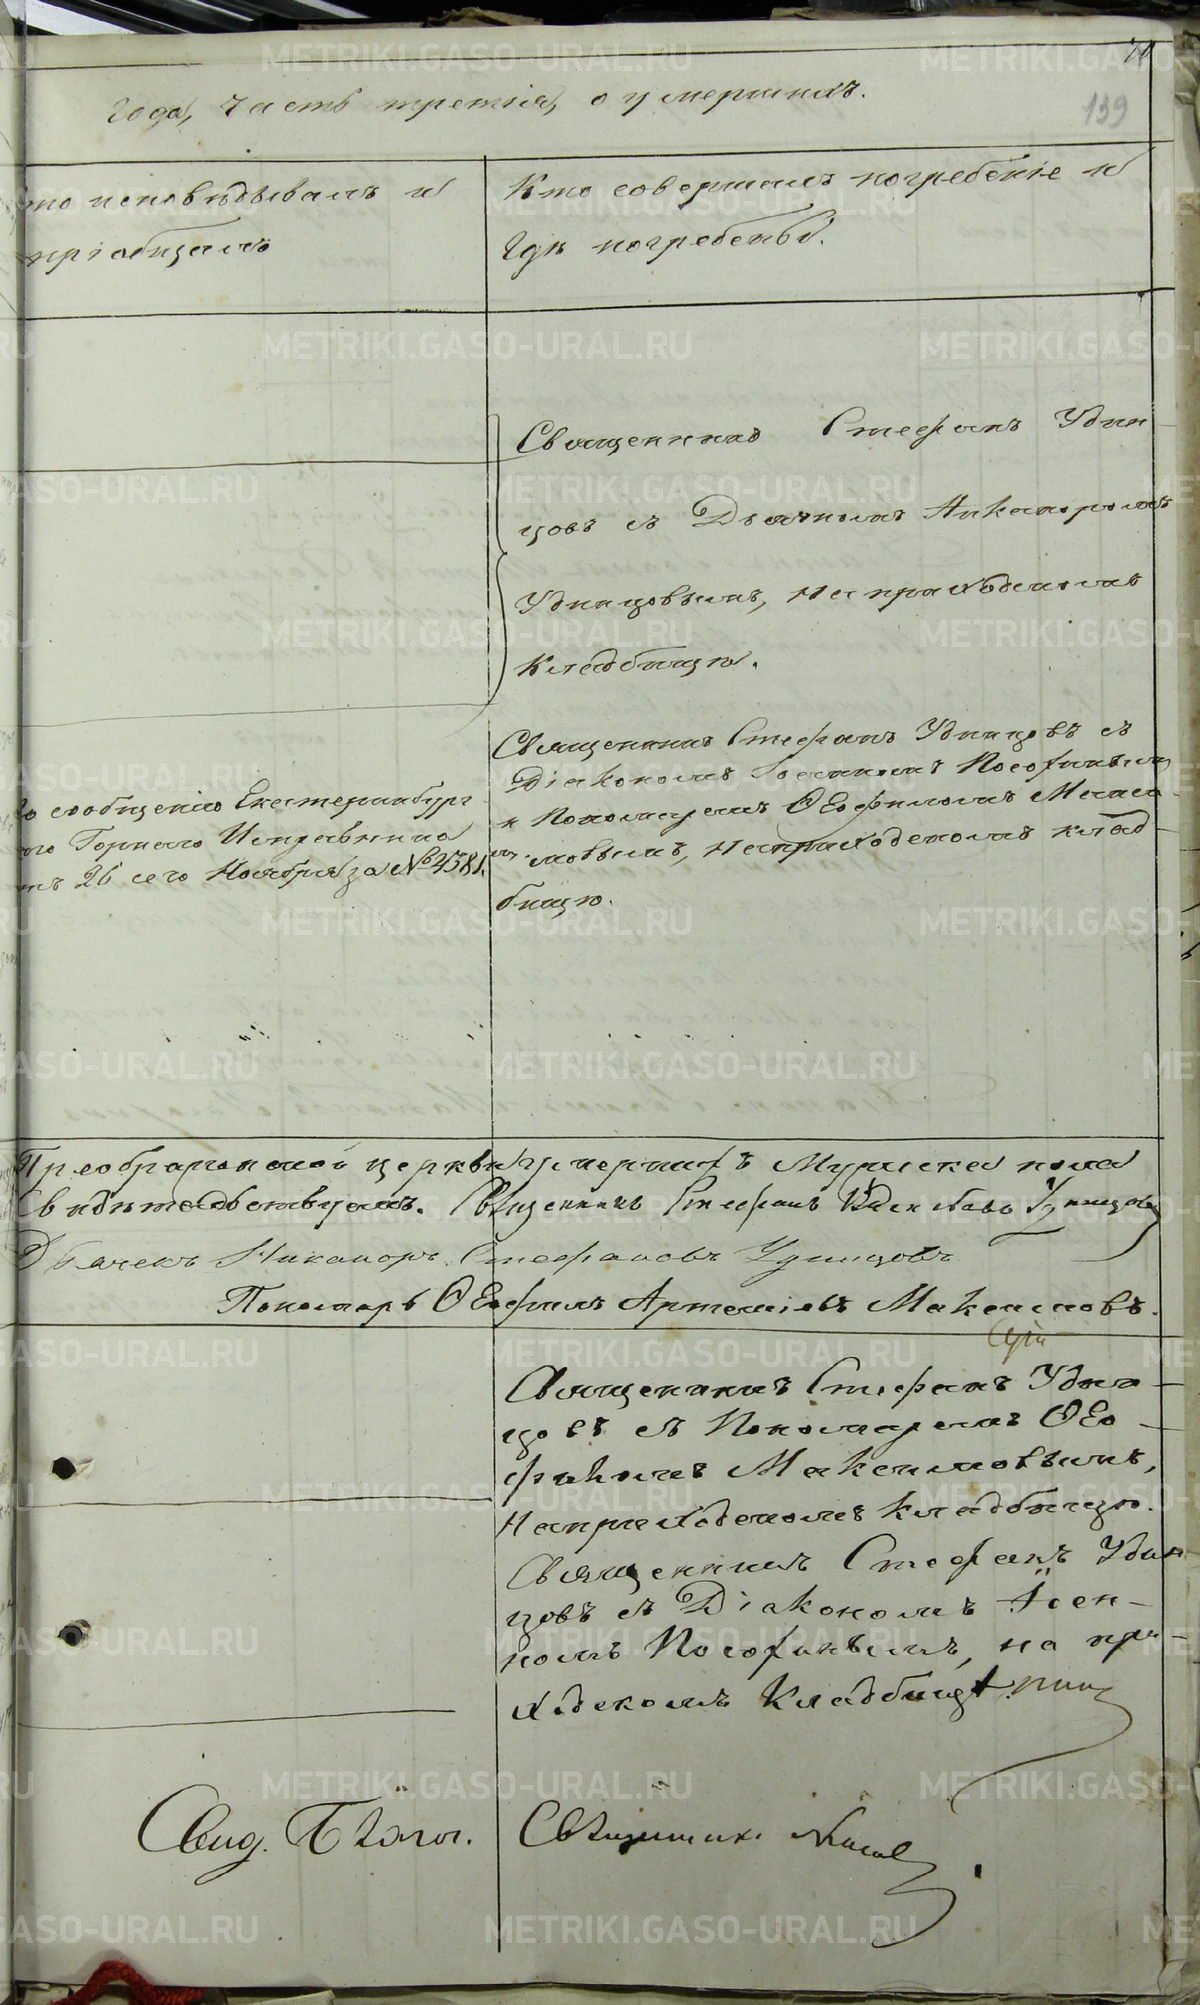 года, часть третія, о умершихъ.
139
то исповѣдывалъ и
пріобщалъ
Кто совершалъ погребеніе и
гдѣ погребены.
Священникъ Стефанъ Удин
цовъ съ Дьячкомъ Никаноромъ
Удинцовымъ, на приходскомъ
кладбищѣ.
о сообщенію Екатеринбург
ого Горнаго Исправника
отъ 26 сего Ноября за № 4581.
Священникъ Стефанъ Удинцовъ съ
Діакономъ Іосенкомъ Посохинымъ
и Пономаремъ Ѳеофиломъ Макси
мовымъ, на приходскомъ клад-
бищѣ.
Преображенской церкви умершихъ Мужеска пола
Свидѣтельствуемъ. Священникъ Стефанъ Удинцовъ
Дьячекъ Никаноръ Стефановъ Удинцовъ
Пономарь Ѳеофилъ Артеміевъ Максимовъ.
Священникъ Стефанъ Удин-
цовъ съ Пономаремъ Ѳео-
филомъ Максимовымъ,
на приходскомъ кладбищѣ.
Священникъ Стефанъ Удин
цовъ съ Діакономъ
Посохинымъ, на при-
ходскомъ кладбищѣ
Свид. Благоч.
Священник
METRIKI.GASO-URAL.RU